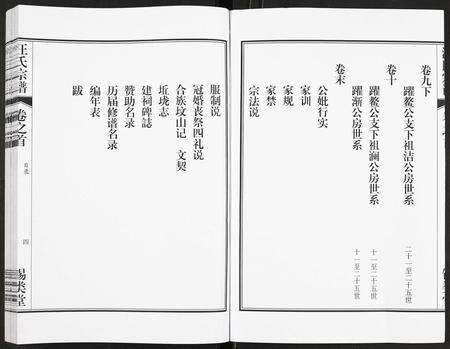 卷九下
躍鳌公支下祖洁公房世系 二十一至二十五世
卷十
躍鳌公支下祖澜公房世系 十一至二十五世
躍渐公房世系 十一至二十五世
卷末
公妣行实
家训
家规
家禁
宗法说
服制说
冠婚丧祭四礼说
合族坟山记 文契
坵垅志
建祠碑誌
赞助名录
历届修谱名录
编年表
跋
汪氏宗谱 卷之首 目录 四 锡类堂